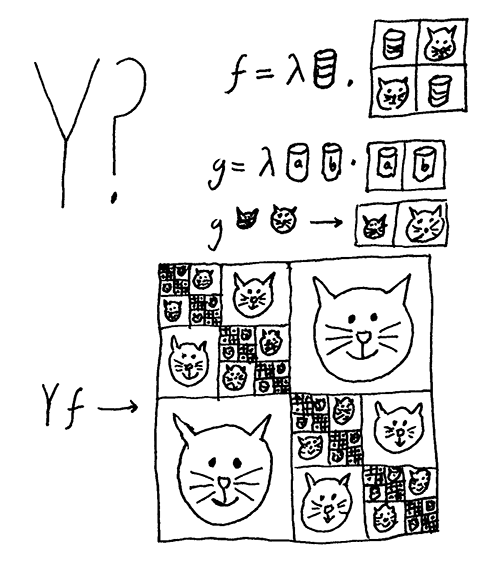 Y?
f = λ .
g = λ a b . a b
g →
Y f →